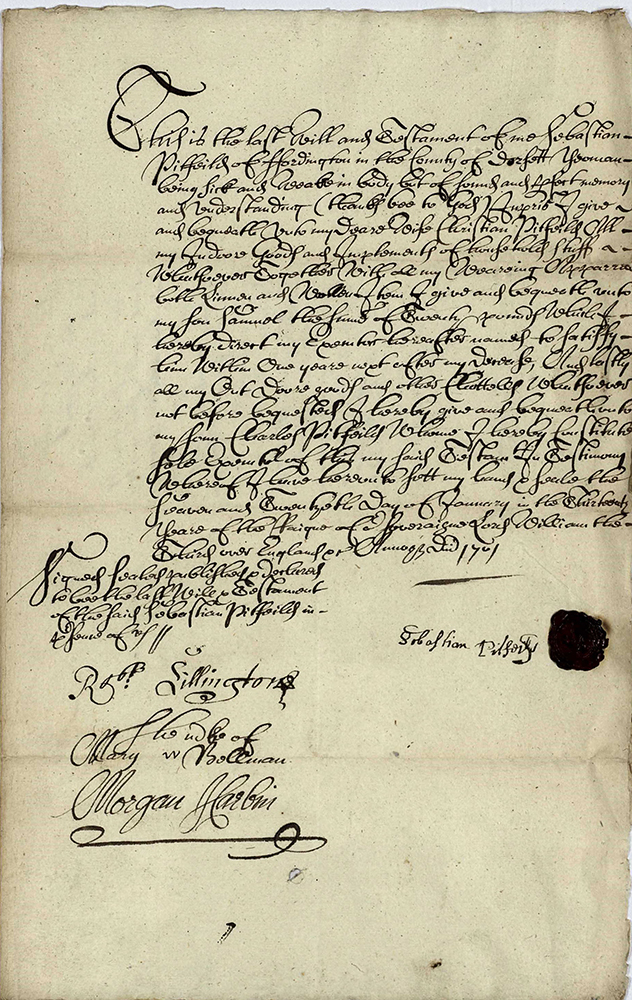 This is the last Will and Testament of me Sebastian
Pitfeild of ffordington in the County of Dorsett Yeoman
being sick and weake in body but of sound and pfect memory
and understanding (thanks bee to God) Inpris I give
and bequeath unto my Deare Wife Christian Pitfeild All
my Indoore Goods and Implements of household stuffe
Whatsoever Together With all my Wearing Apparrell
both Linnen and Wollen Item I give and bequeath unto
my son Samuel the sume of Twenty pounds Which I
hereby direct my Executor hereafter named to satisfy
him Within One yeare next after my Decease, And lastly
all my Out Doore goods and other Chattells Whatsoever
not before bequeathed I hereby give and bequeath unto
my sonn Charles Pitfeild Whome I hereby Constitute
sole Executor of this my said Testamt In Testimony
Whereof I have hereunto sett my hand & seale the
seaven and Twentyeth Day of January in the Thirteenth
Yeare of the Raigne of or Soveraigne Lord William the
Third over England &c Annoqz Dni 1701
Signed sealed published & declared
to bee the last Will & Testament
of the said Sebastian Pitfeild in
psence of us //
Sebastian Pitfeild
Robt Lillington
The mke of
Mary W Bellman
Morgan Harbin